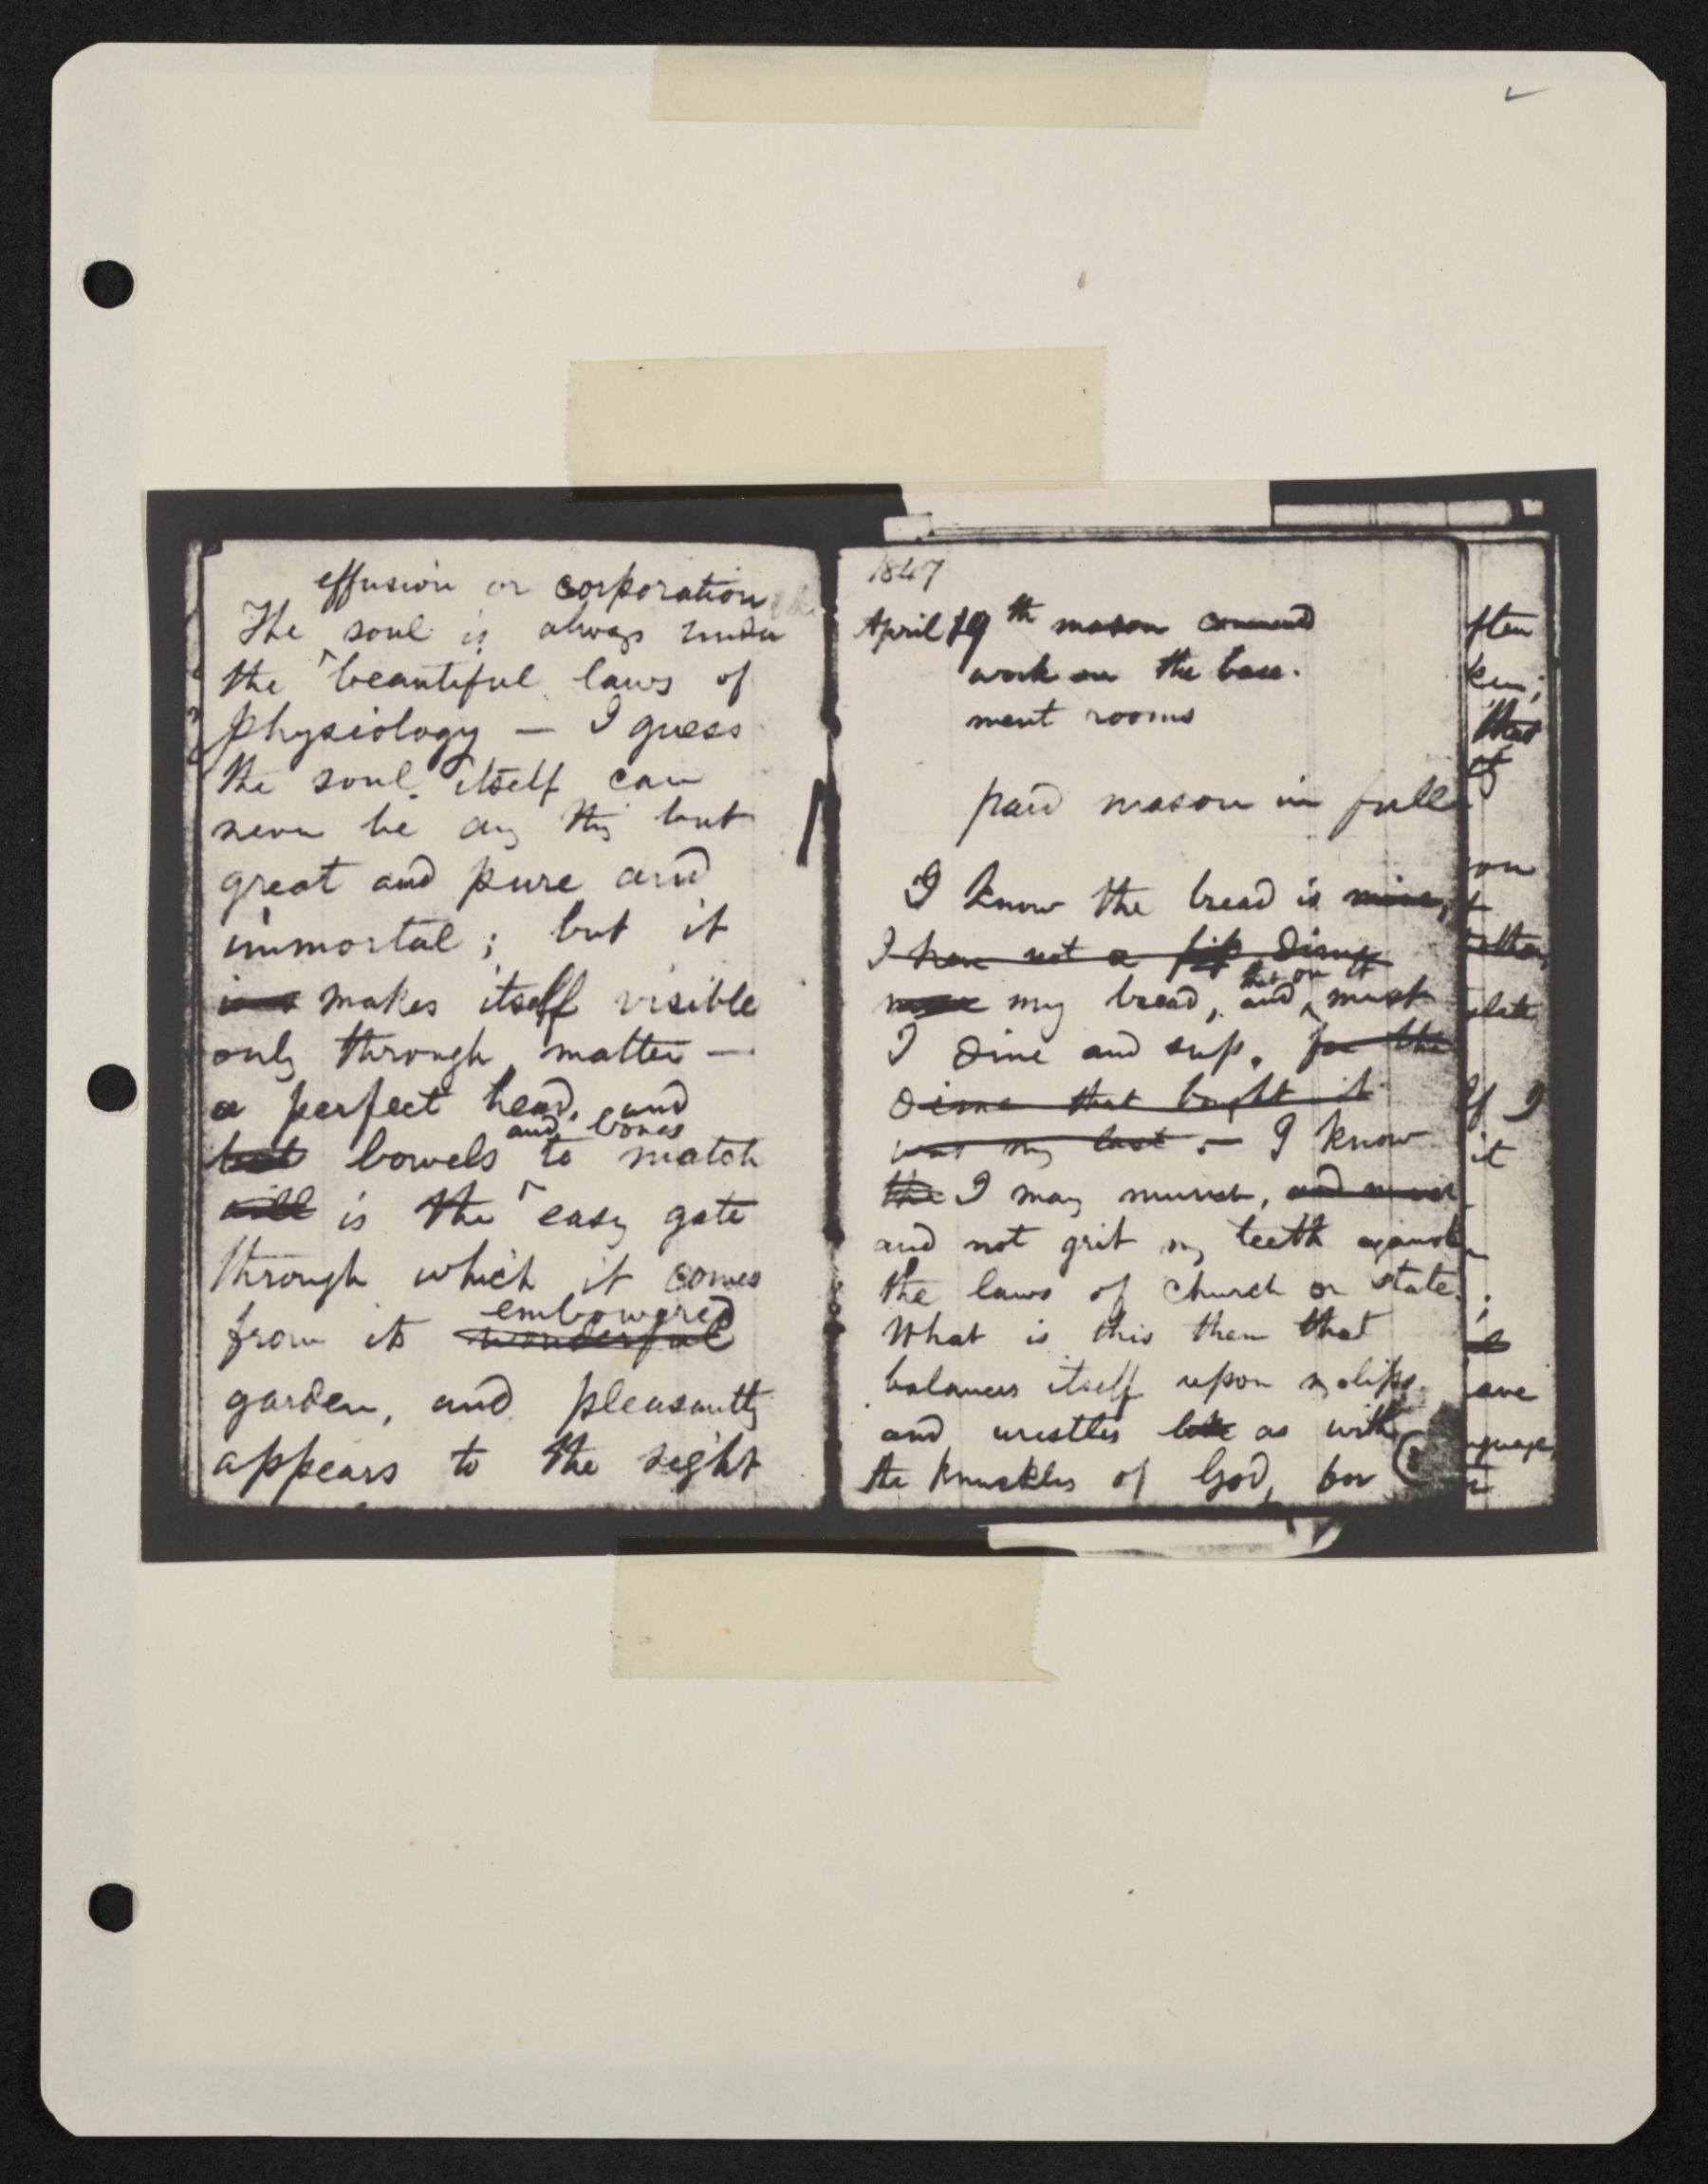 effusion or corporation
The soul is always under
the beautiful laws of
physiology — I guess
the soul itself can
never be any thing but
great and pure and
immortal; but it
makes itself visible
only through matter —
a perfect head, and
and bones
bowels to match
is the easy gate
through which it comes
embowered
from its wonderful
garden, and pleasantly
appears to the sight
1847
April 19th mason commenced
work on the base-
ment rooms
paid mason in full
I know the bread is mine,
I have not a fip dime
that on it
my bread, and must
I dine and sup. for the
dime that bought it
was my last. — I know
the I may munch, and never
and not grit my teeth against
the laws of church or state.
What is this then that
balances itself upon my lips
and wrestles like as with
the knuckles of God, for
that
of
If I
it